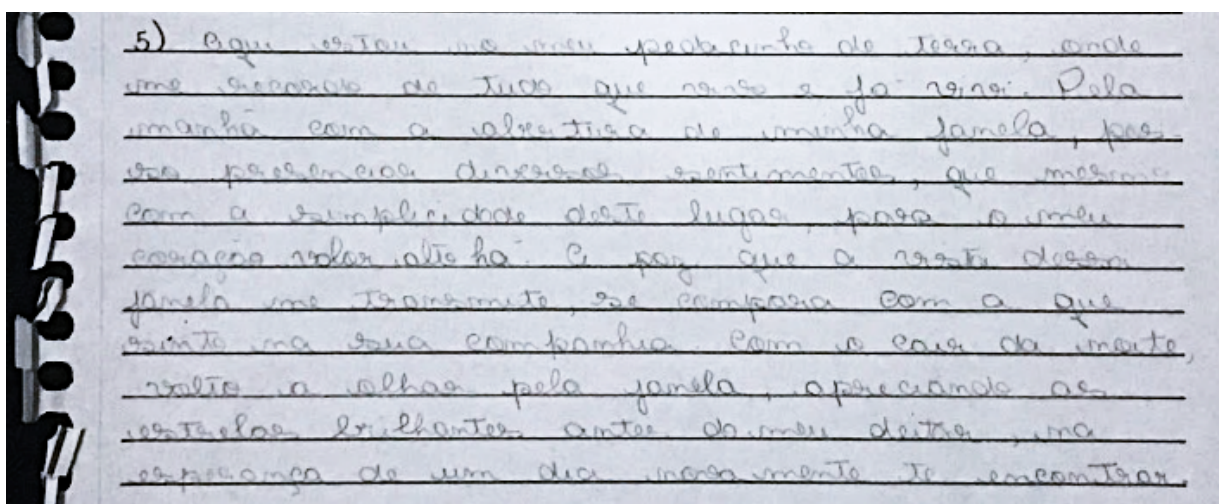 5) Aqui estou no meu pedacinho de terra, onde
me recordo de tudo que vivo e já vivi. Pela
manhã com a abertura de minha janela, pos-
so presenciar diversos sentimentos, que mesmo
com a simplicidade deste lugar, para o meu
coração valor alto há. A paz que a vista dessa
janela me transmite, se compara com a que
sinto na sua companhia. Com o cair da noite,
volto a olhar pela janela, apreciando as
estrelas brilhantes antes do meu deitar, na
esperança de um dia novamente te encontrar.